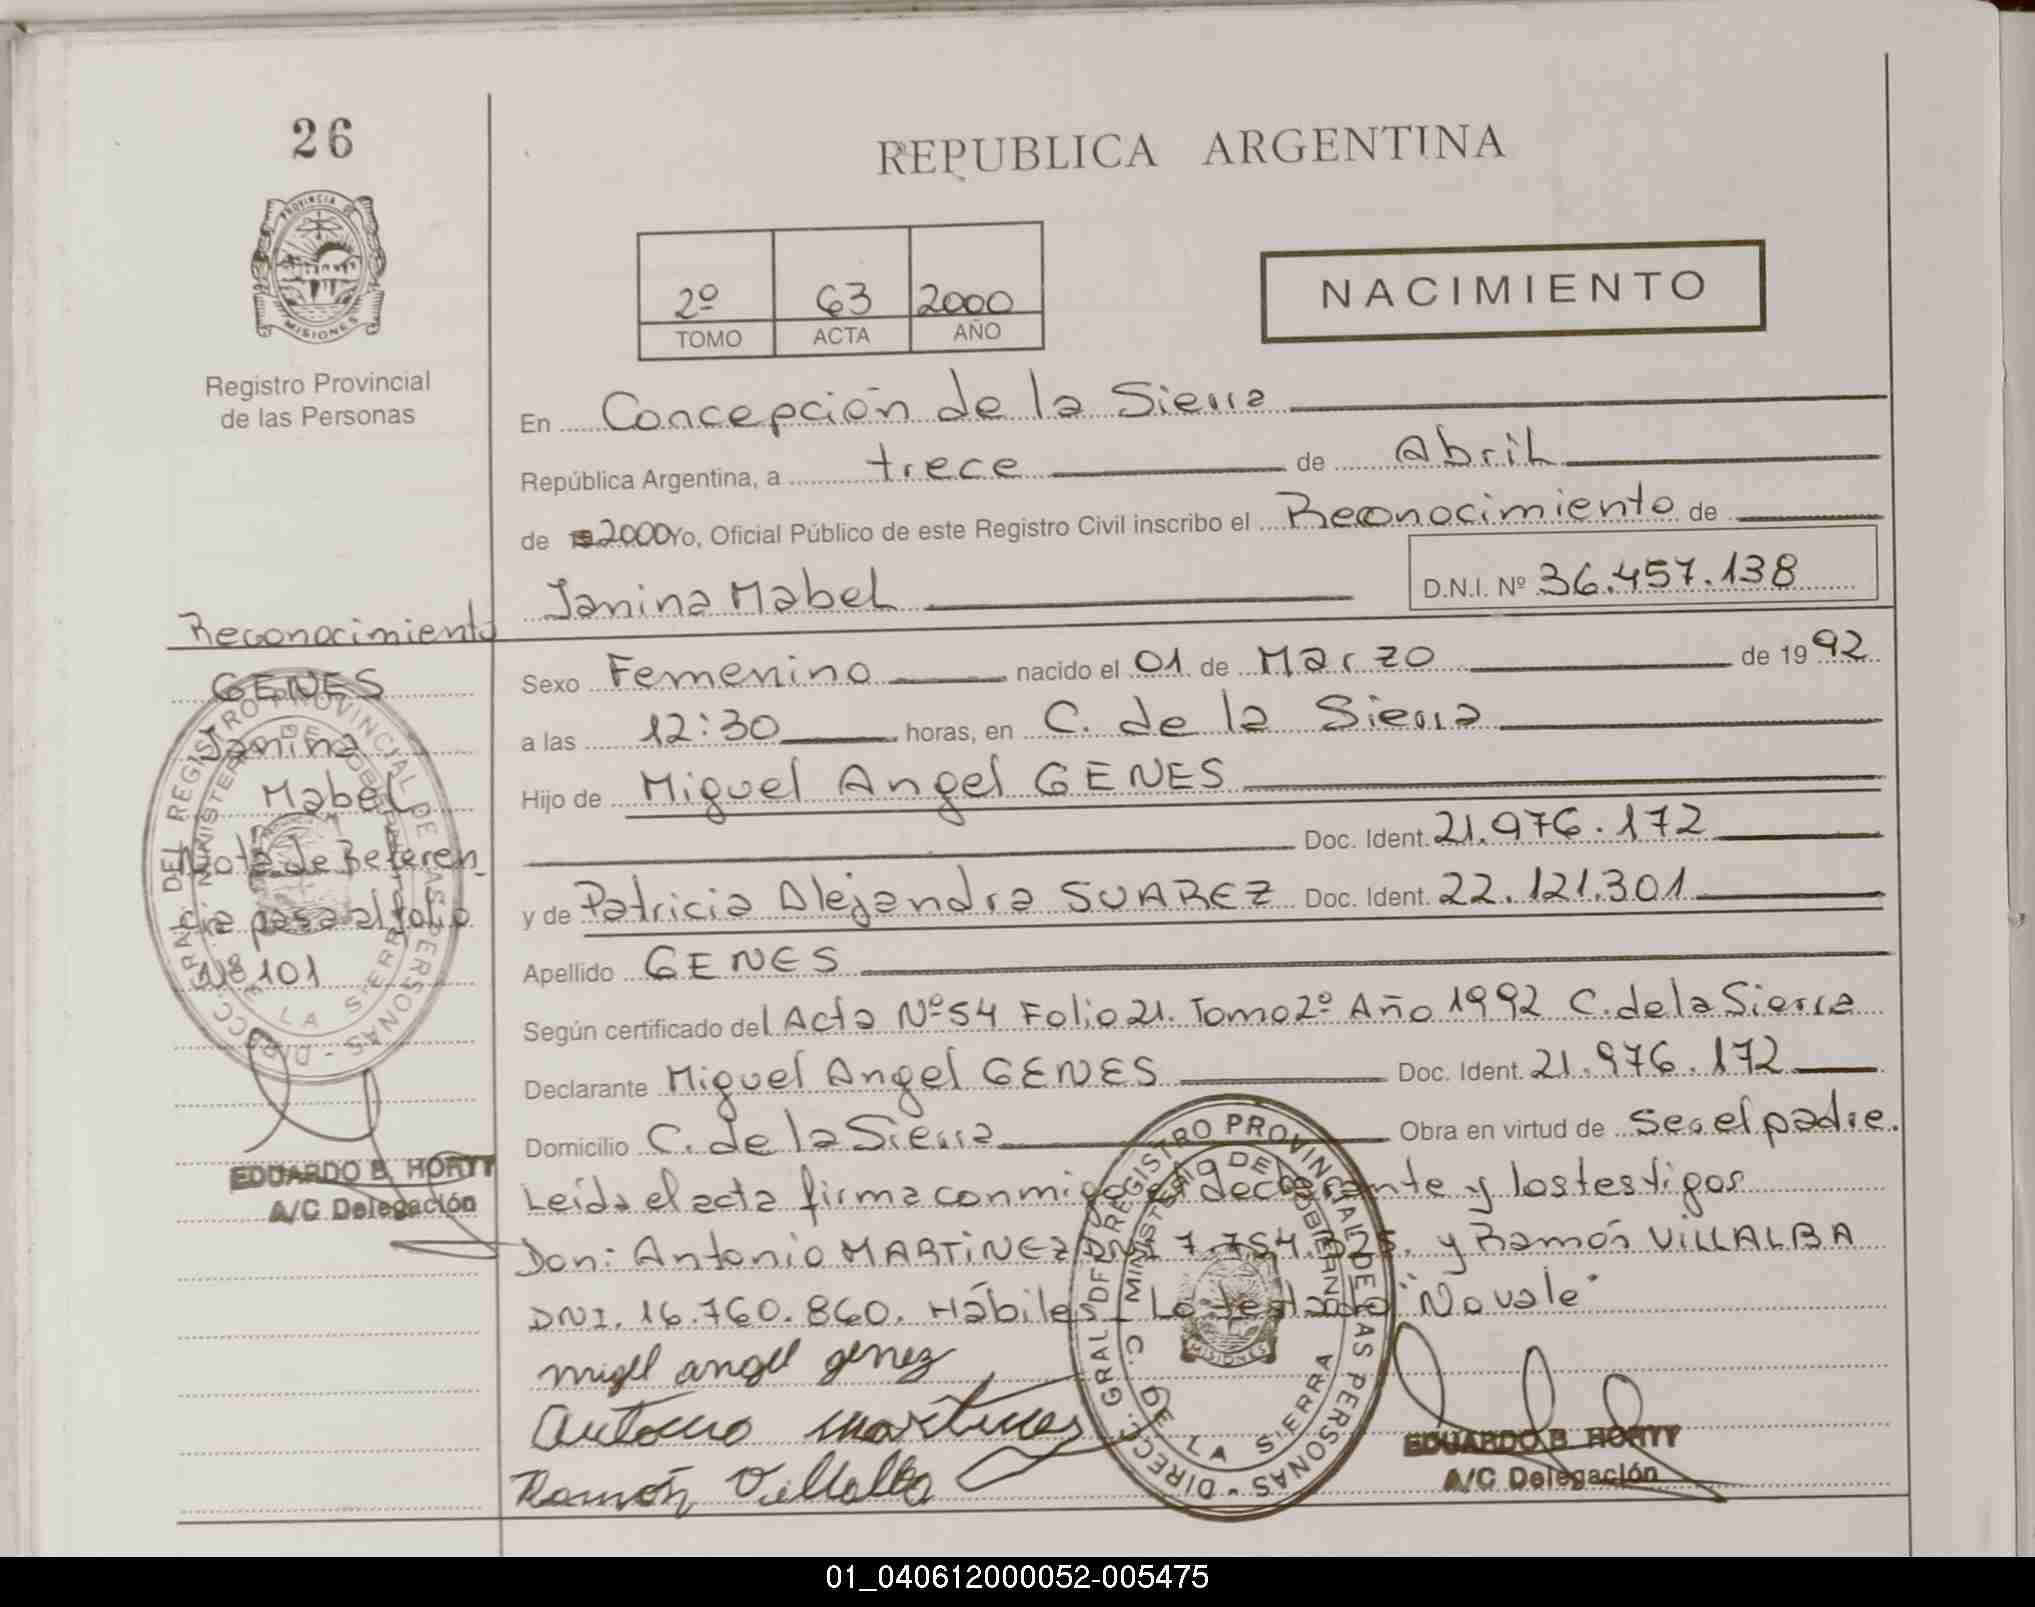 26
PROVINCIA DE
MISIONES
Registro Provincial
de las Personas
REPUBLICA ARGENTINA
2º 63 2000
TOMO ACTA AÑO
NACIMIENTO
En Concepción de la Sierra
República Argentina, a trece de abril
de 2000 Yo, Oficial Público de este Registro Civil inscribo el Reconocimiento de
Janina Mabel D.N.I. Nº 36.457.138
Reconocimiento
GENES
Janina
Mabel
Nota de Referen
cia pasa al folio
Nº 101
EDUARDO B. HORTT
A/C Delegación
Sexo Femenino nacido el 01 de Marzo de 1992
a las 12:30 horas, en C. de la Sierra
Hijo de Miguel Angel GENES
Doc. Ident. 21.976.172
y de Patricia Alejandra SUAREZ Doc. Ident. 22.121.301
Apellido GENES
Según certificado del Acta Nº 54 Folio 21. Tomo 2º Año 1992 C. de la Sierra
Declarante Miguel Angel GENES Doc. Ident. 21.976.172
Domicilio C. de la Sierra Obra en virtud de ser el padre.
Leída el acta firma conmigo el declarante y los testigos
Don: Antonio MARTINEZ DNI 7.754.325. y Ramón VILLALBA
DNI. 16.760.860. Hábiles. Lo testado "No vale"
migel angel genez
Antonio Martinez
Ramón Villalba
DIRECC. GRAL. DEL REGISTRO PROVINCIAL DE LAS PERSONAS
MINISTERIO DE GOBIERNO
C. DE LA SIERRA
MISIONES
EDUARDO B. HORTT
A/C Delegación
01_040612000052-005475